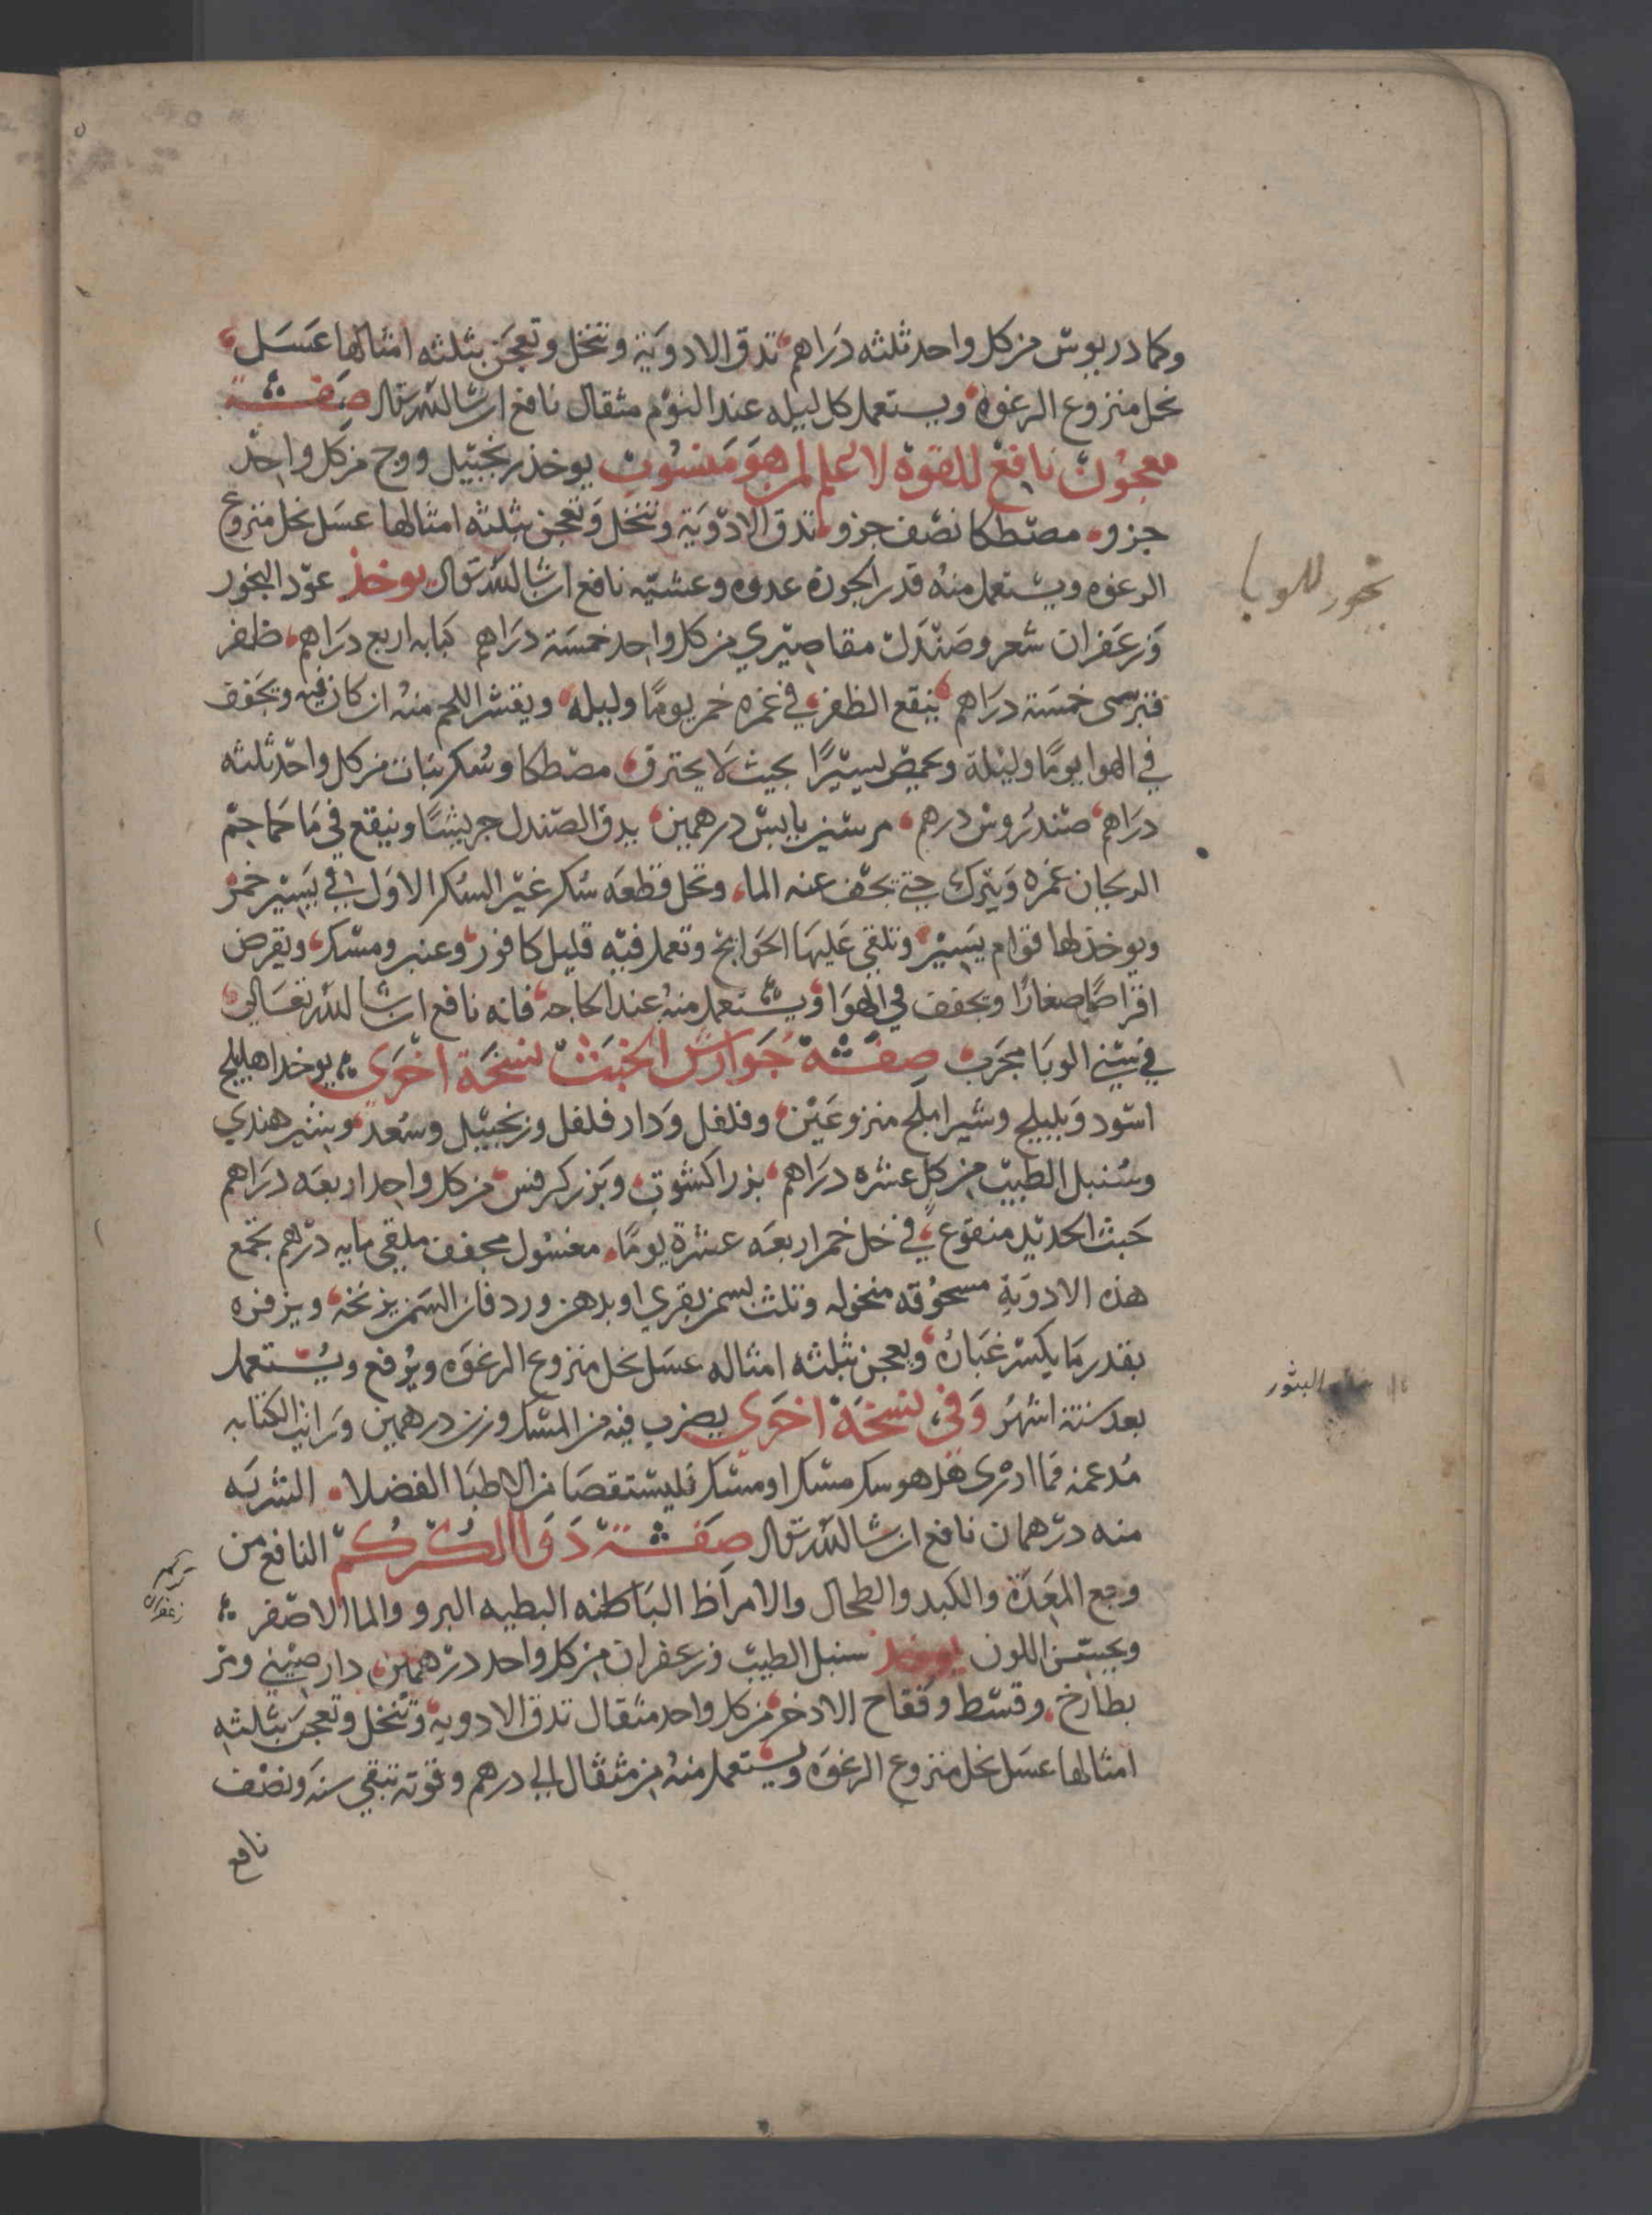 وكمادريوس من كل واحد ثلثه دراهم تدق الادوية وتنخل وتعجن بثلثه امثالها عسل
نحل منزوع الرغوه ويستعمل كل ليله عند النوم مثقال نافع ان شا الله تعالى صفة
معجون نافع للقوة لا علم لمن هو منسوب يوخذ زنجبيل ووج من كل واحد
جزو مصطكا نصف جزو تدق الادوية وتنخل وتعجن بثلثه امثالها عسل نحل منزوع
الرغوه ويستعمل منه قدر الجوزة غدوه وعشيه نافع ان شا الله تعالى يوخذ عود البخور
بخور للوبا
وزعفران شعر وصندل مقاصيري من كل واحد خمسة دراهم كبابه اربع دراهم ظفر
قبرسى خمسة دراهم ينقع الظفر في غمره خمر يوما وليله ويقشر اللحم منه ان كان فيه ويجفف
في الهوا يوما وليلة ويحمص يسيرا بحيث لا يحترق مصطكا وسكر نبات من كل واحد ثلثه
دراهم صندروس درهم مرسين يابس درهمين يدق الصندل جريشا وينقع في ما حماحم
الريحان غمره ويترك حتى يجف عنه الما وتحل قطعه سكر غير السكر الاول في يسير خمر
ويوخذ لها قوام يسير وتلقى عليها الحوايج وتعمل فيه قليل كافور وعنبر ومسك ويقرص
اقراصا صغارا ويجفف في الهوا ويستعمل منه عند الحاجه فانه نافع ان شا الله تعالى
في سني الوبا مجرب صفة جوارش الخبث نسخة اخرى يوخد اهليلج
اسود وبليلج وشير املج منزوعين وفلفل ودار فلفل وزنجبيل وسعد وشير هندي
وسنبل الطيب من كل عشره دراهم بزر اكشوت وبزر كرفس من كل واحد اربعه دراهم
خبث الحديد منقوع في خل خمر اربعه عشرة يوما مغسول مجفف ملقى مايه درهم تجمع
هذه الادوية مسحوقه منخوله وتلت بسمن بقري او بدهن ورد فان السمن يزنخه ويزفره
بقدر ما يكسر غباره ويعجن بثلثه امثاله عسل نحل منزوع الرغوه ويرفع ويستعمل
البثور
بعد ستة اشهر وفي نسخة اخرى يضرب فيه من المسك وزن درهمين ورايت الكتابه
مدغمه فما ادرى هل هو سك مسك او مسك فليستقصا من الاطبا الفضلا الشربه
منه درهمان نافع ان شا الله تعالى صفة دوا الكركم النافع من
زعفران
وجع المعدة والكبد والطحال والامراظ الباطنه البطيه البرو والما الاصفر
ويحسن اللون يوخذ سنبل الطيب وزعفران من كل واحد درهمين دار صيني ومر
بطارخ وقسط وفقاح الادخر من كل واحد مثقال تدق الادويه وتنخل وتعجن بثلثه
امثالها عسل نحل منزوع الرغوه ويستعمل منه من مثقال الى درهم وقوته تبقي سنه ونصف
نافع